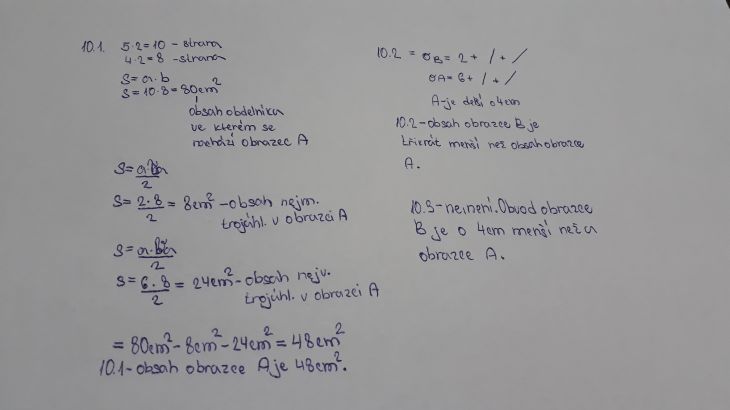 10.1. 5·2=10 - strana
4·2=8 - strana
S=a·b
S=10·8=80cm²
obsah obdelníka
ve kterém se
nachází obrazec A
S=a·va
2
S=2·8 = 8cm² - obsah nejm.
2
trojúhl. v obrazci A
S=a·va
2
S=6·8 = 24cm² - obsah nejv.
2
trojúhl. v obrazci A
= 80cm²-8cm²-24cm²=48cm²
10.1-obsah obrazce A je 48cm².
10.2 = oB = 2+ / + /
oA = 6+ / + /
A-je delší o 4cm
10.2-obsah obrazce B je
třikrát menší než obsah obrazce
A.
Obvod obrazce
B je o 4cm menší než u
obrazce A.